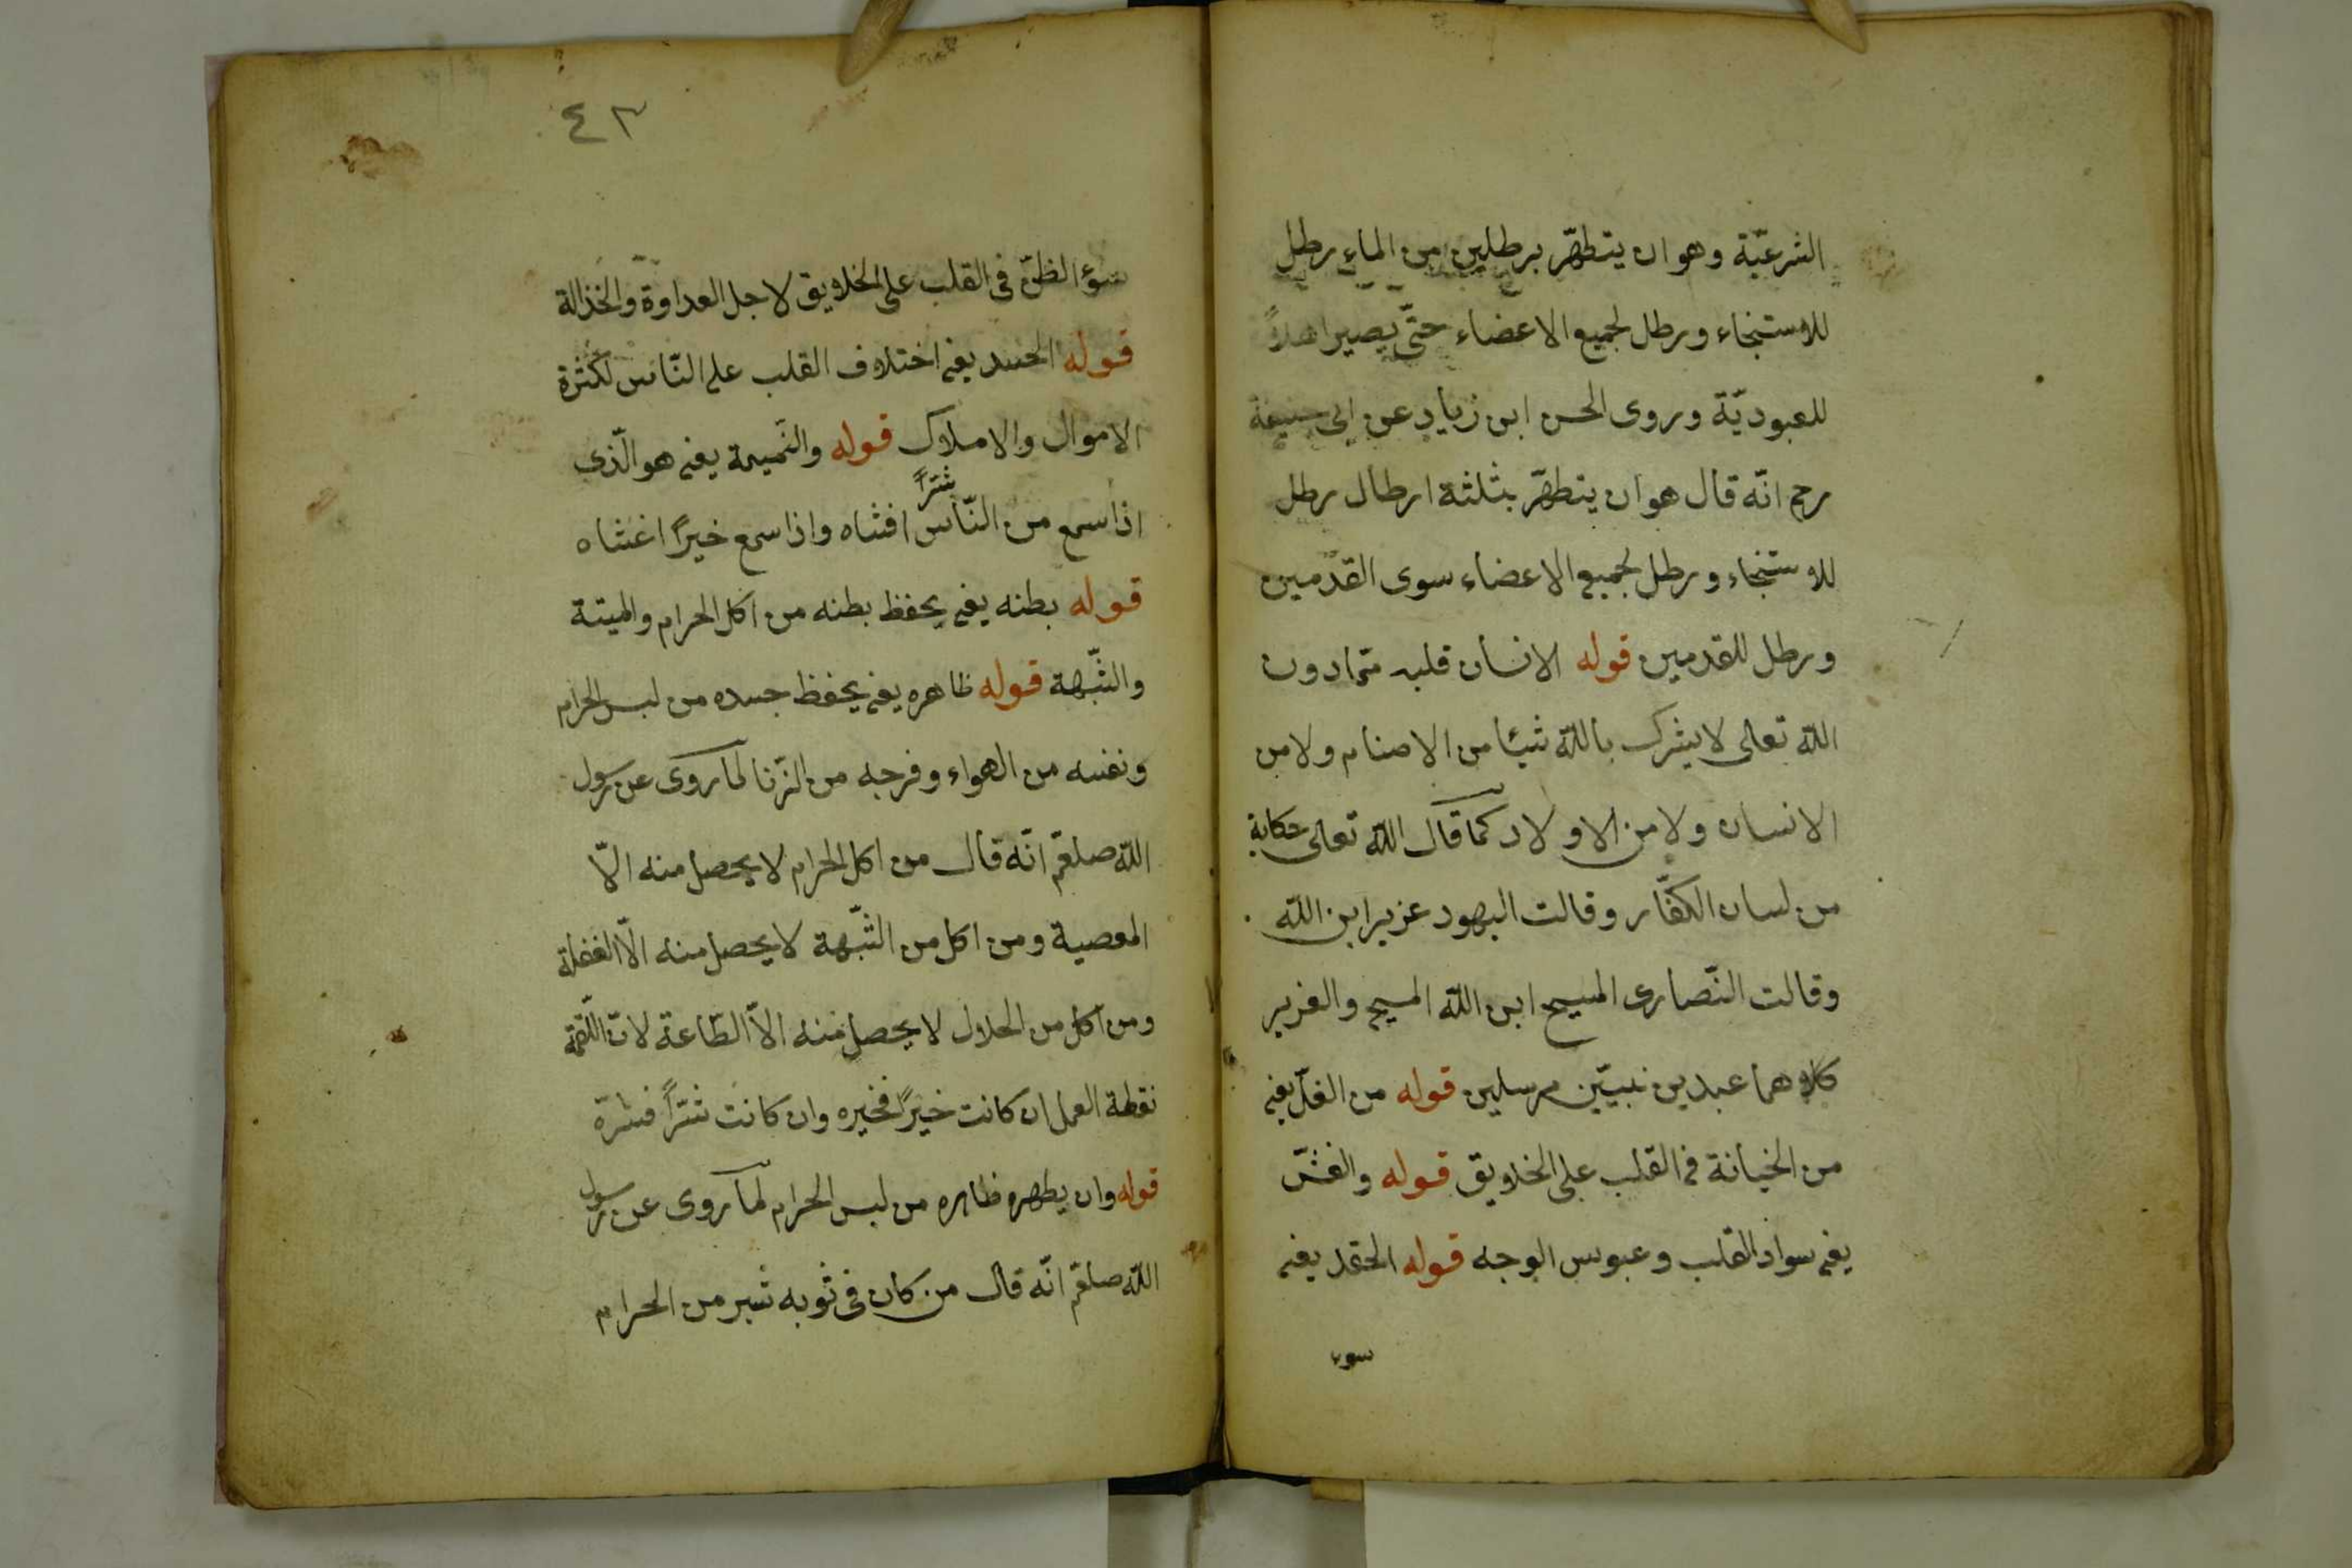 الشرعيّة وهو ان يتطهّر برطلين من الماء رطل
للاستنجاء ورطل لجميع الاعضاء حتّى يصير اهلاً
للعبوديّة وروى الحسن ابن زياد عن ابى حنيفة
رحم انّه قال هو ان يتطهّر بثلثة ارطال رطل
للاستنجاء ورطل لجميع الاعضاء سوى القدمين
ورطل للقدمين قوله الانسان قلبه متمادون
الله تعالى لا يشرك بالله شيئا من الاصنام ولا من
الانسان ولا من الاولاد كما قال الله تعالى حكاية
من لسان الكفّار وقالت اليهود عزير ابن الله
وقالت النّصارى المسيح ابن الله المسيح والعزير
كلاهما عبدين نبيّين مرسلين قوله من الغلّ يعنى
من الخيانة فى القلب على الخلايق قوله والغشّ
يعنى سواد القلب وعبوس الوجه قوله الحقد يعنى
سوء
٤٣
سوء الظنّ فى القلب على الخلايق لاجل العداوة والخذالة
قوله الحسد يعنى اختلاف القلب على النّاس لكثرة
الاموال والاملاك قوله والنّميمة يعنى هو الّذى
اذا سمع من النّاس شرّاً افشاه واذا سمع خيرًا اغشاه
قوله بطنه يعنى يحفظ بطنه من اكل الحرام والميتة
والشّبهة قوله ظاهره يعنى يحفظ جسده من لبس الحرام
ونفسه من الهواء وفرجه من الزّنا لما روى عن رسول
الله صلعم انّه قال من اكل الحرام لا يحصل منه الّا
المعصية ومن اكل من الشّبهة لا يحصل منه الّا الغفلة
ومن اكل من الحلال لا يحصل منه الّا الطّاعة لانّ اللّقمة
نقطة العمل ان كانت خيرًا فخيره وان كانت شرّاً فشرّه
قوله وان يطهره ظاهره من لبس الحرام لما روى عن رسول
الله صلعم انّه قال من كان فى ثوبه شبر من الحرام